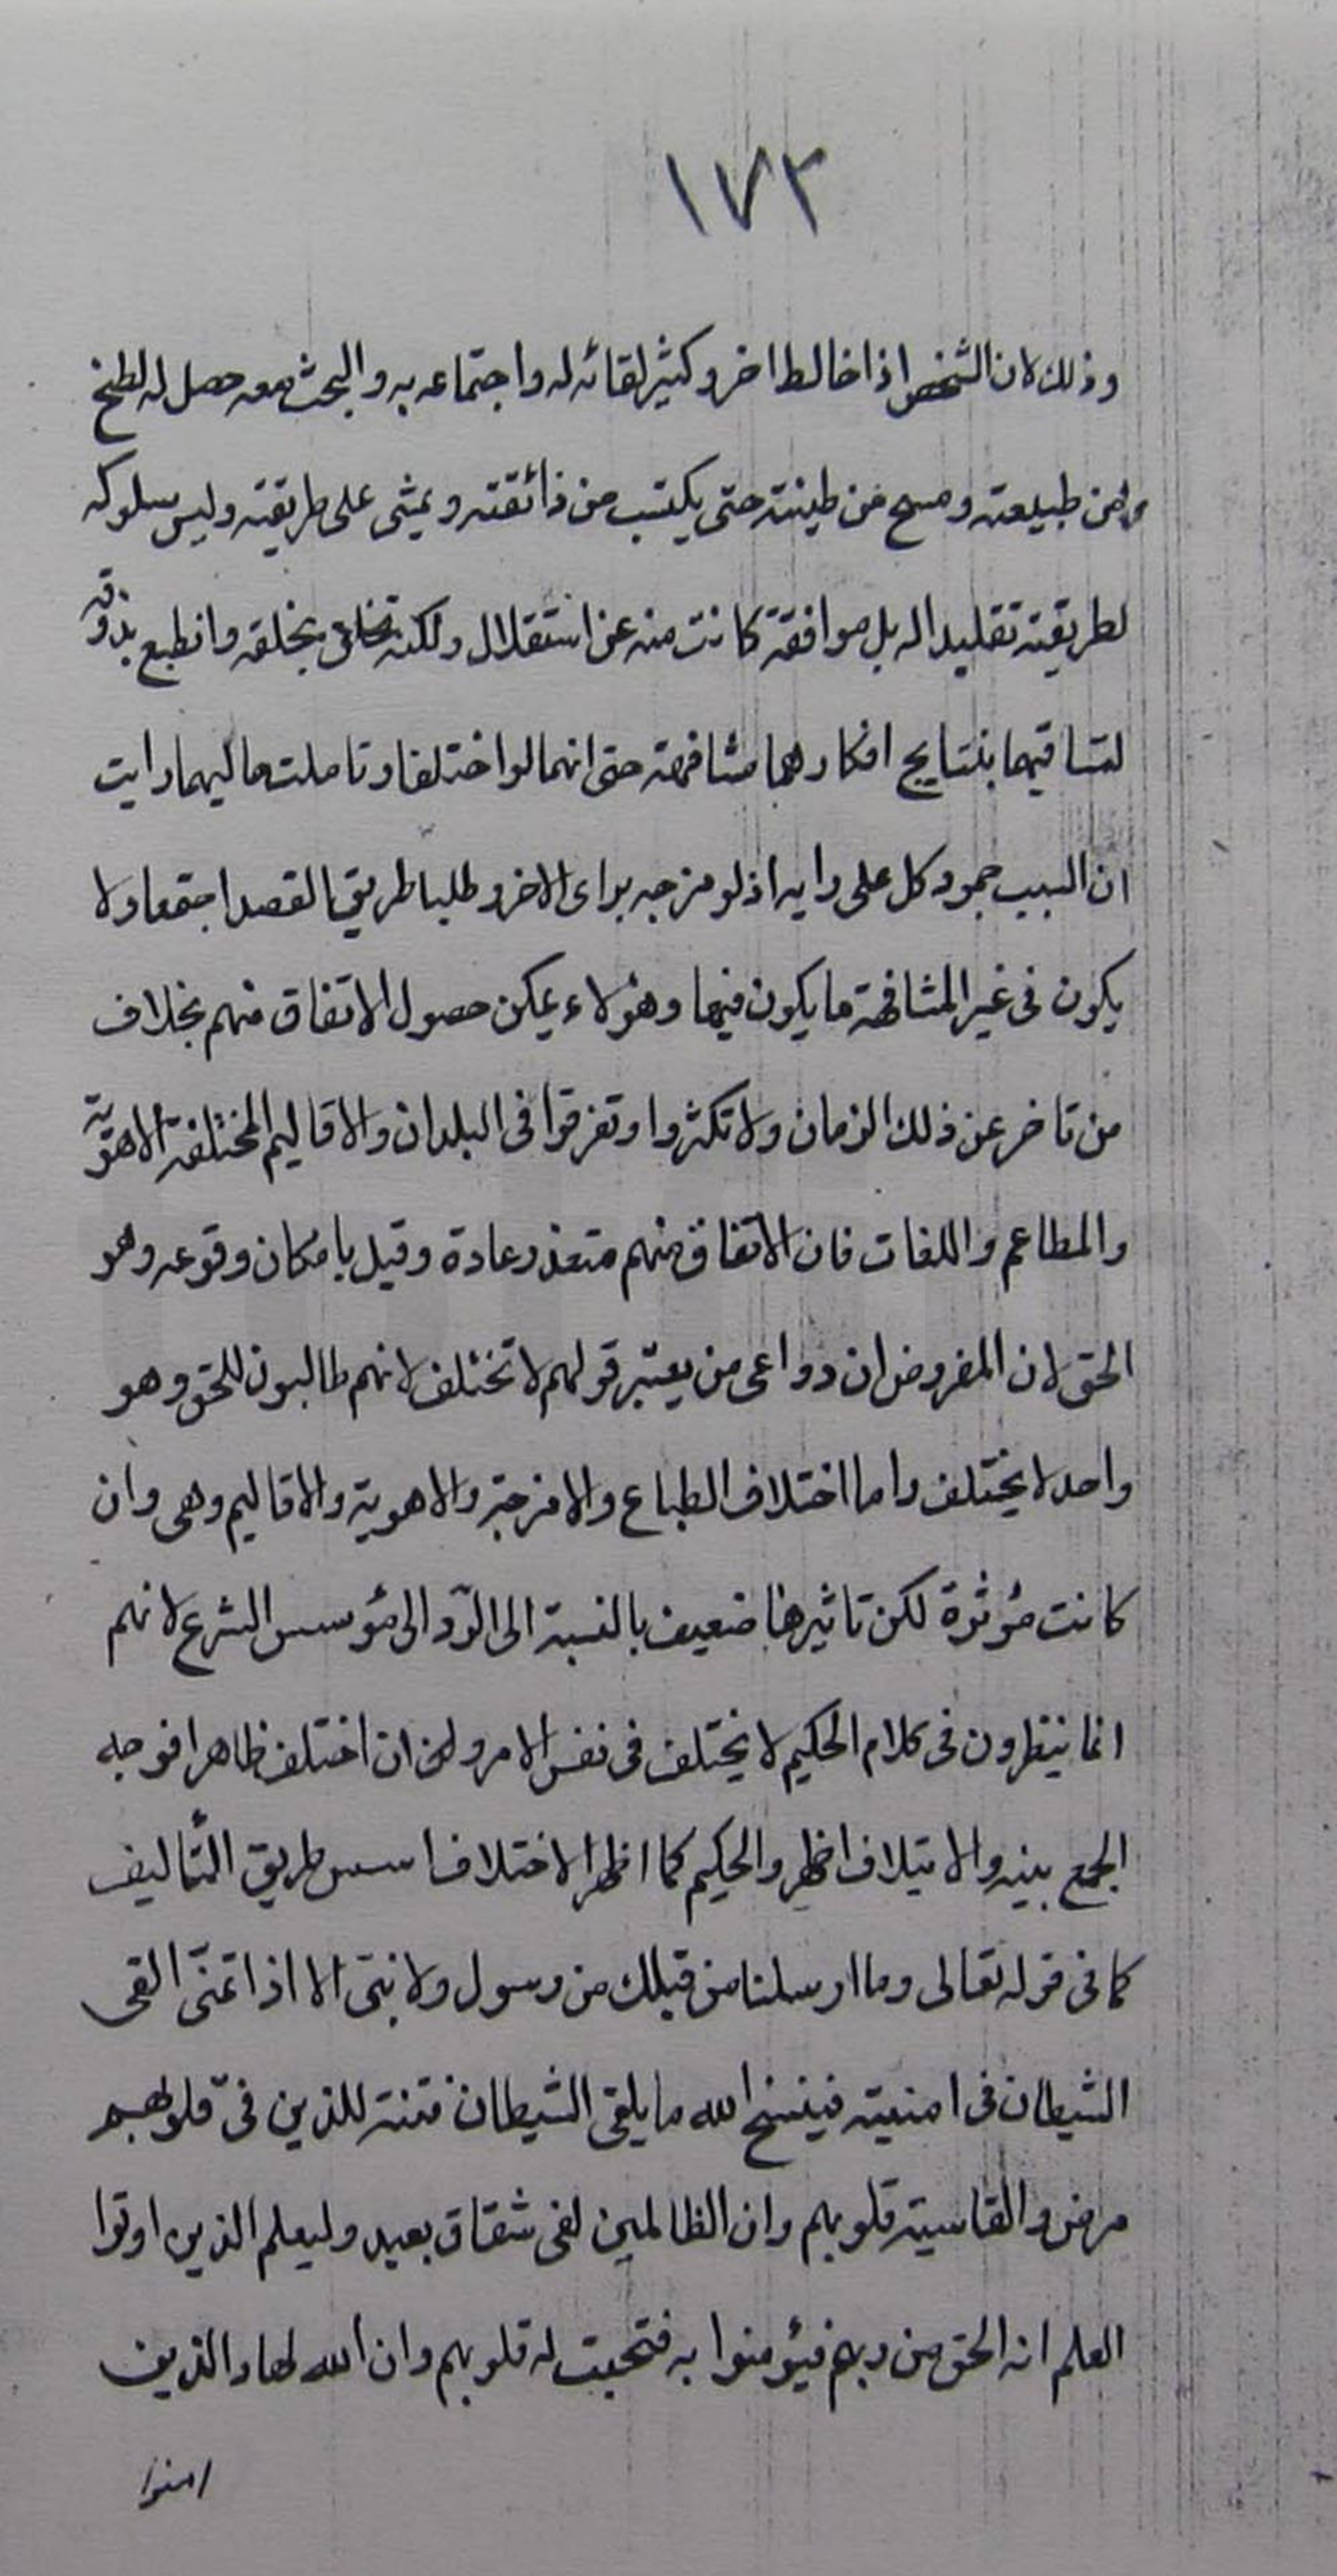 ١٧٣
وذلك لان الشخص اذا خالط اخر وكثير لقائه له واجتماعه به والبحث معه حصل له لطخ
من طبيعته ومسح من طينته حتى يكتسب من ذائقته ويمشى على طريقته وليس سلوكه
لطريقته تقليدا له بل موافقة كانت منه عن استقلال ولكنه تخلق بخلقه وانطبع بذوقه
لتساقيهما بنتايج افكارهما مشافهة حتى انهما لو اختلفا وتاملت حاليهما رايت
ان السبب جمود كل على رايه اذ لو مزجه براى الاخر وطلبا طريق القصد اجتمعا ولا
يكون فى غير المشافهة ما يكون فيها وهؤلاء يمكن حصول الاتفاق منهم بخلاف
من تاخر عن ذلك الزمان ولا تكثروا وتفرقوا فى البلدان والاقاليم المختلفة الاهوية
والمطاعم واللغات فان الاتفاق منهم متعذر عادة وقيل بامكان وقوعه وهو
الحق لان المفروض ان دواعى من يعتبر قولهم لا تختلف لانهم طالبون للحق وهو
واحد لا يختلف واما اختلاف الطباع والامزجة والاهوية والاقاليم وهى وان
كانت مؤثرة لكن تاثيرها ضعيف بالنسبة الى الرّد الى مؤسس الشرع لانهم
انما ينظرون فى كلام الحكيم لا يختلف فى نفس الامر ولئن ان اختلف ظاهرا فوجه
الجمع بينه والايتلاف اظهر والحكيم كما اظهر الاختلاف اسس طريق التّاليف
كما فى قوله تعالى وما ارسلنا من قبلك من رسول ولا نبىّ الا اذا تمنّى القى
الشيطان فى امنيته فينسخ الله ما يلقى الشيطان فتنة للذين فى قلوبهم
مرض والقاسية قلوبهم وان الظالمين لفى شقاق بعيد وليعلم الذين اوتوا
العلم انه الحق من ربهم فيؤمنوا به فتخبت له قلوبهم وان الله لهاد الذين
امنوا